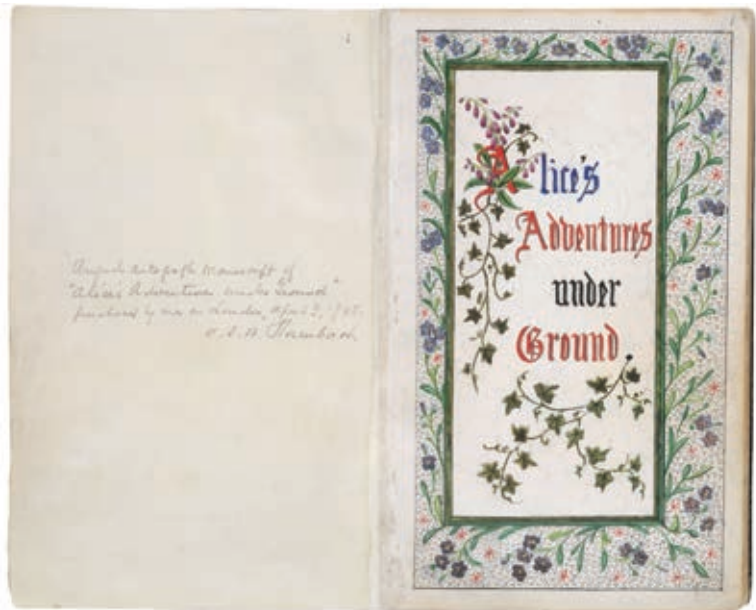 Original autograph manuscript of
"Alice's Adventures under Ground"
purchased by me in London, April 3, 1928.
A. S. W. Rosenbach
Alice's
Adventures
under
Ground